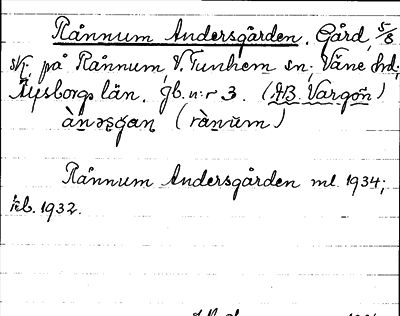 Rånnum Andersgården. Gård, 5/8
sk. på Rånnum, V. Tunhem sn; Väne hd;
Älvsborgs län. Jb. n:r 3. (AB Vargön)
àṇəʂg̣aṇ (ràṇum)
Rånnum Andersgården ml. 1934;
kb. 1932.